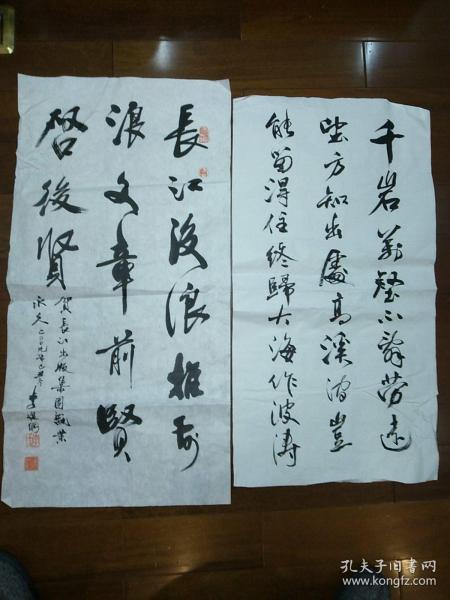 千岩萬壑不辭勞遠
望方知出處高溪澗豈
能留得住終歸大海作波濤
長江後浪推前
浪文章前賢
啓後賢
賀長江出版集團敬業
孔夫子旧书网
www.kongfz.com